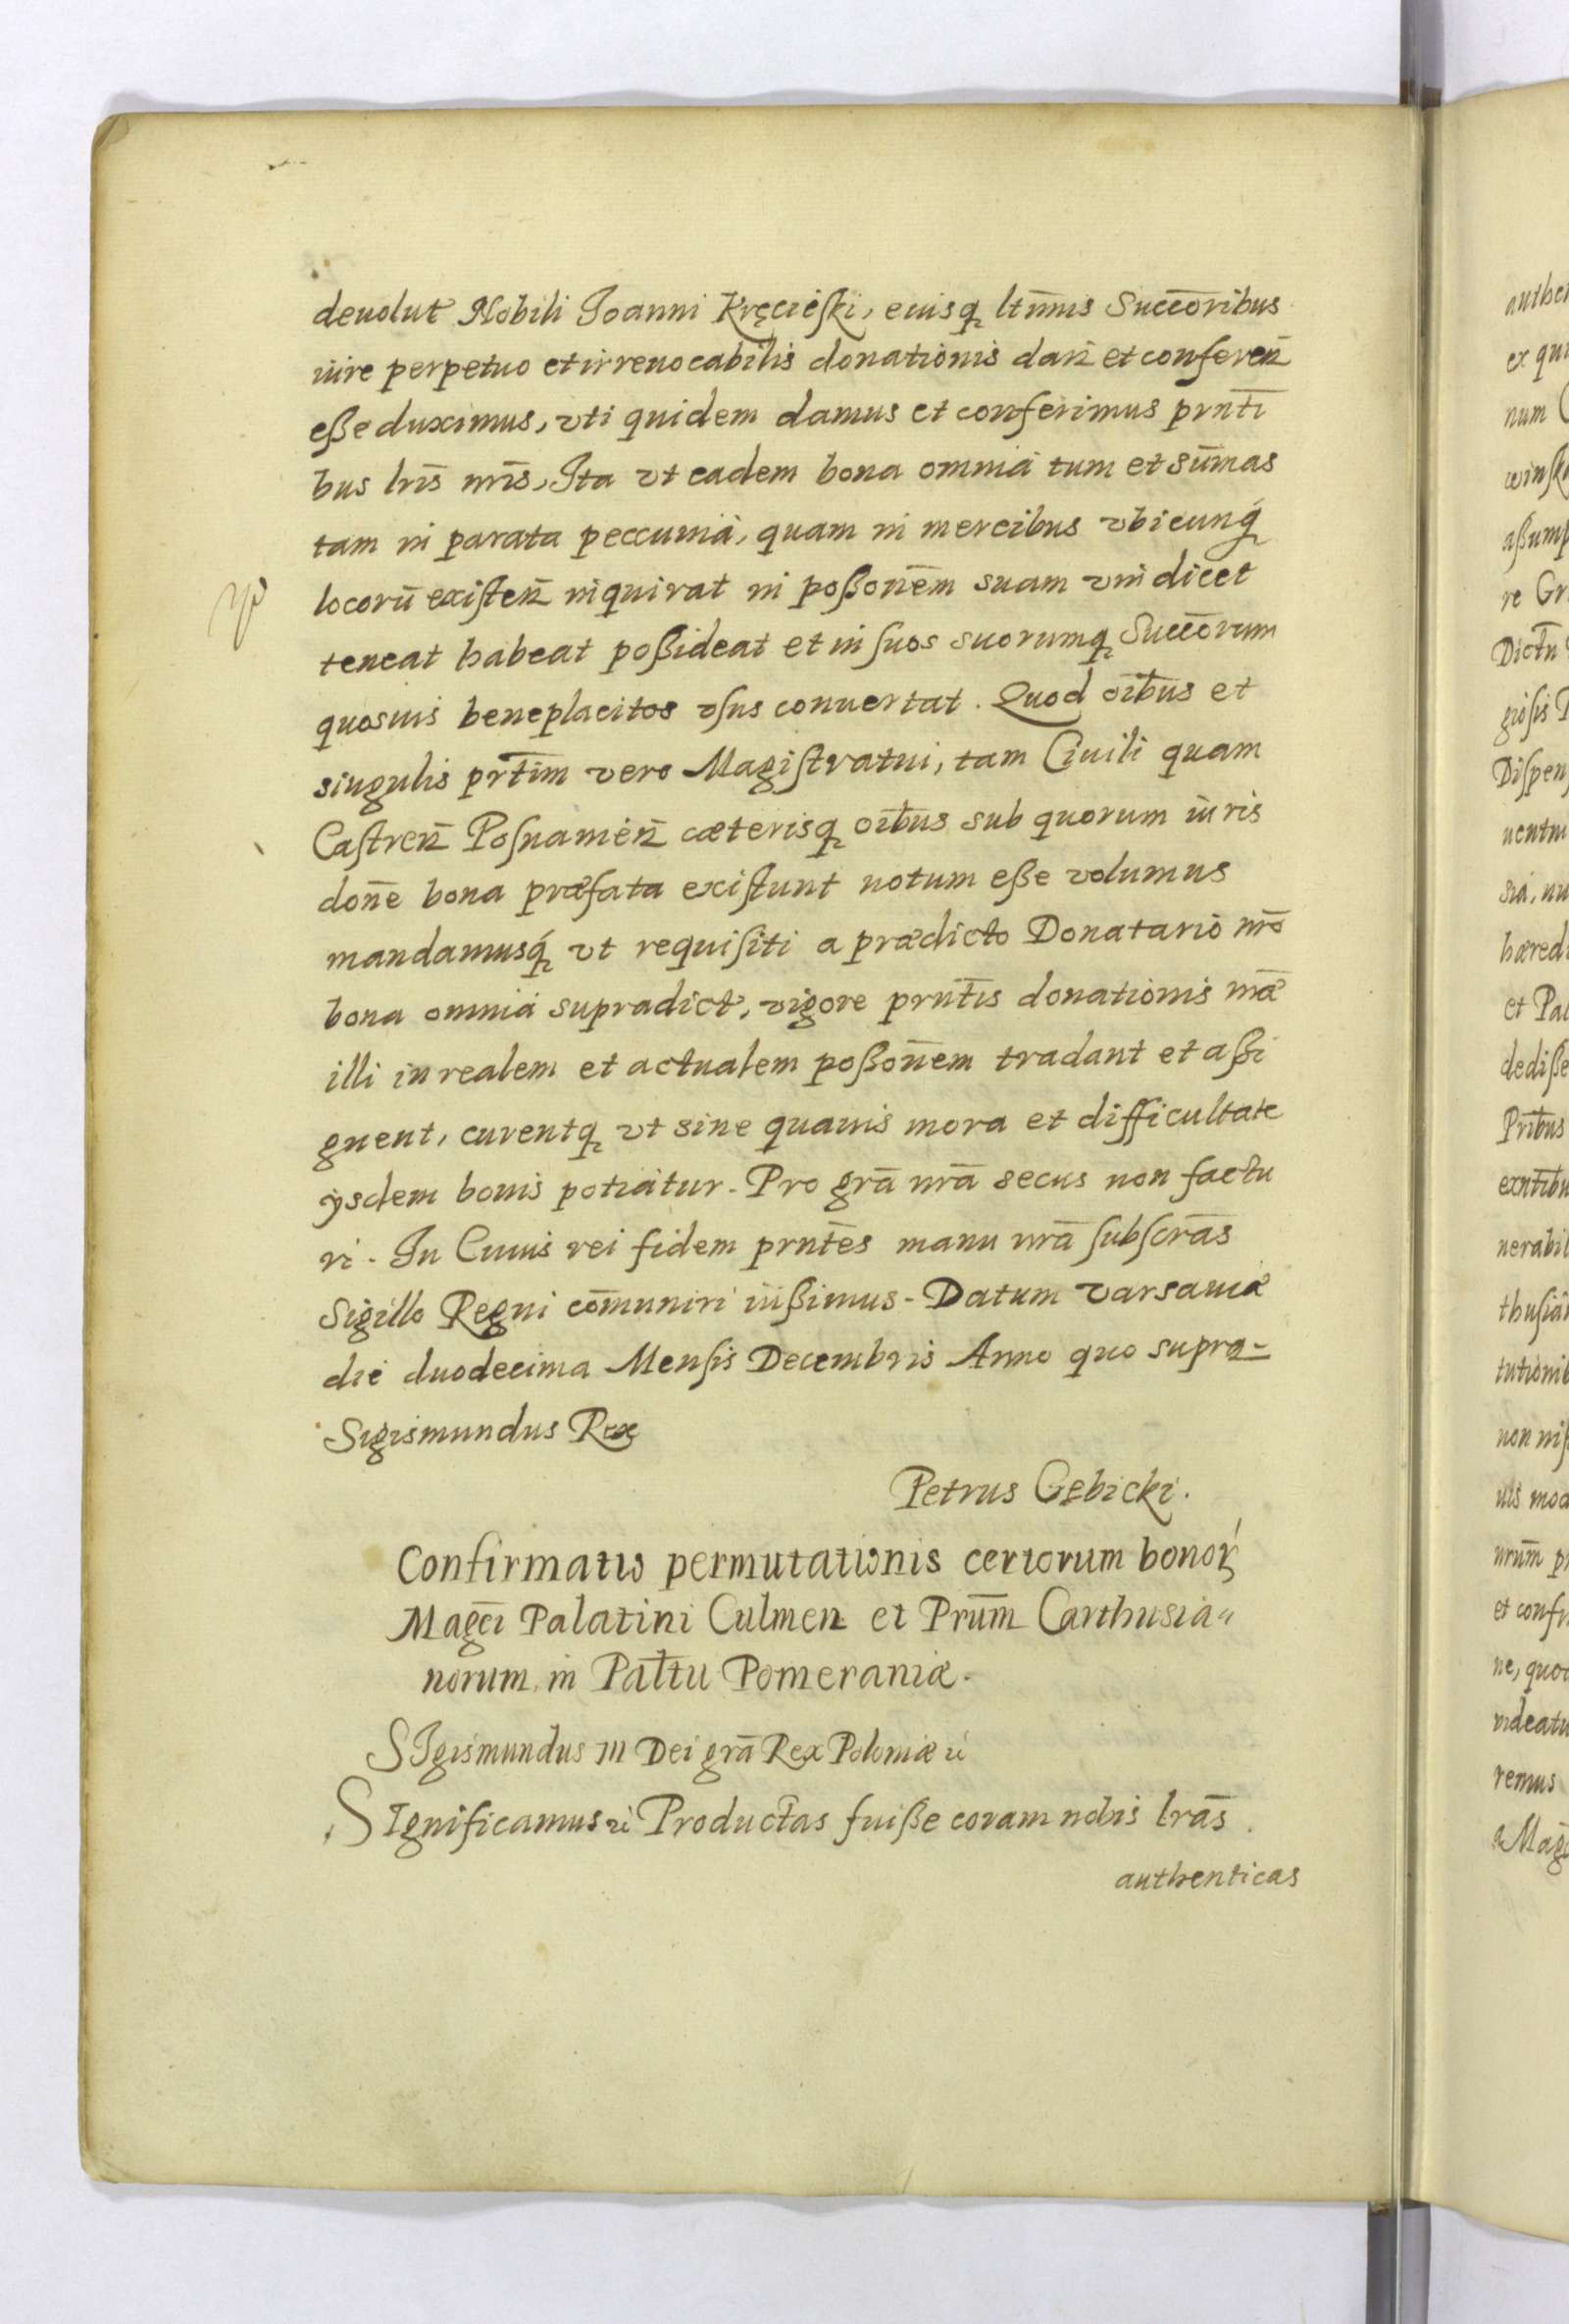 deuolut Nobili Joanni Kręcieſki, eiusq ltm̄is Succōribus
iure perpetuo et irreuocabilis donationis dan̄ et conferen̄
eße duximus, vti quidem damus et conferimus prn̄ti
bus lr̄is nr̄is, Ita vt eadem bona omnia tum et sum̄as
tam in parata peccunia, quam in mercibus vbicunq́
locorū exiſten̄ inquirat in poßon̄em suam vindicet
teneat habeat poßideat et in ſuos suorumq Succōrum
quosuis beneplacitos vſus conuertat. Quod oīb̄us et
singulis prt̄im vero Magiſtratui, tam Ciuili quam
Caſtren̄ Poſnamen̄ cæterisq oīb̄us sub quorum iuris
don̄e bona præfata exiſtunt notum eße volumus
mandamusq́ vt requiſiti a prædicto Donatario nr̄o
bona omnia supradict, vigore prn̄tis donationis nr̄æ
illi in realem et actualem poßon̄em tradant et aßi
gnent, curentq vt sine quauis mora et difficultate
ysdem bonis potiatur. Pro grā nr̄a secus non factu
ri. In Cuius rei fidem prn̄tes manu nr̄a ſubſcrās
Sigillo Regni com̄uniri iußimus. Datum Varsauiæ
die duodecima Menſis Decembris Anno quo supra-
Sigismundus Rex
Petrus Gębicki.
Confirmatio permutationis certorum bonoꝝ
Magcī Palatini Culmen et Prūm Carthusia„
norum in Palt̄u Pomeraniæ.
SIgismundus III Dei grā Rex Poloniæ ꝛc
SIgnificamus ꝛc Productas fuiße coram nobis lr̄as.
authenticas